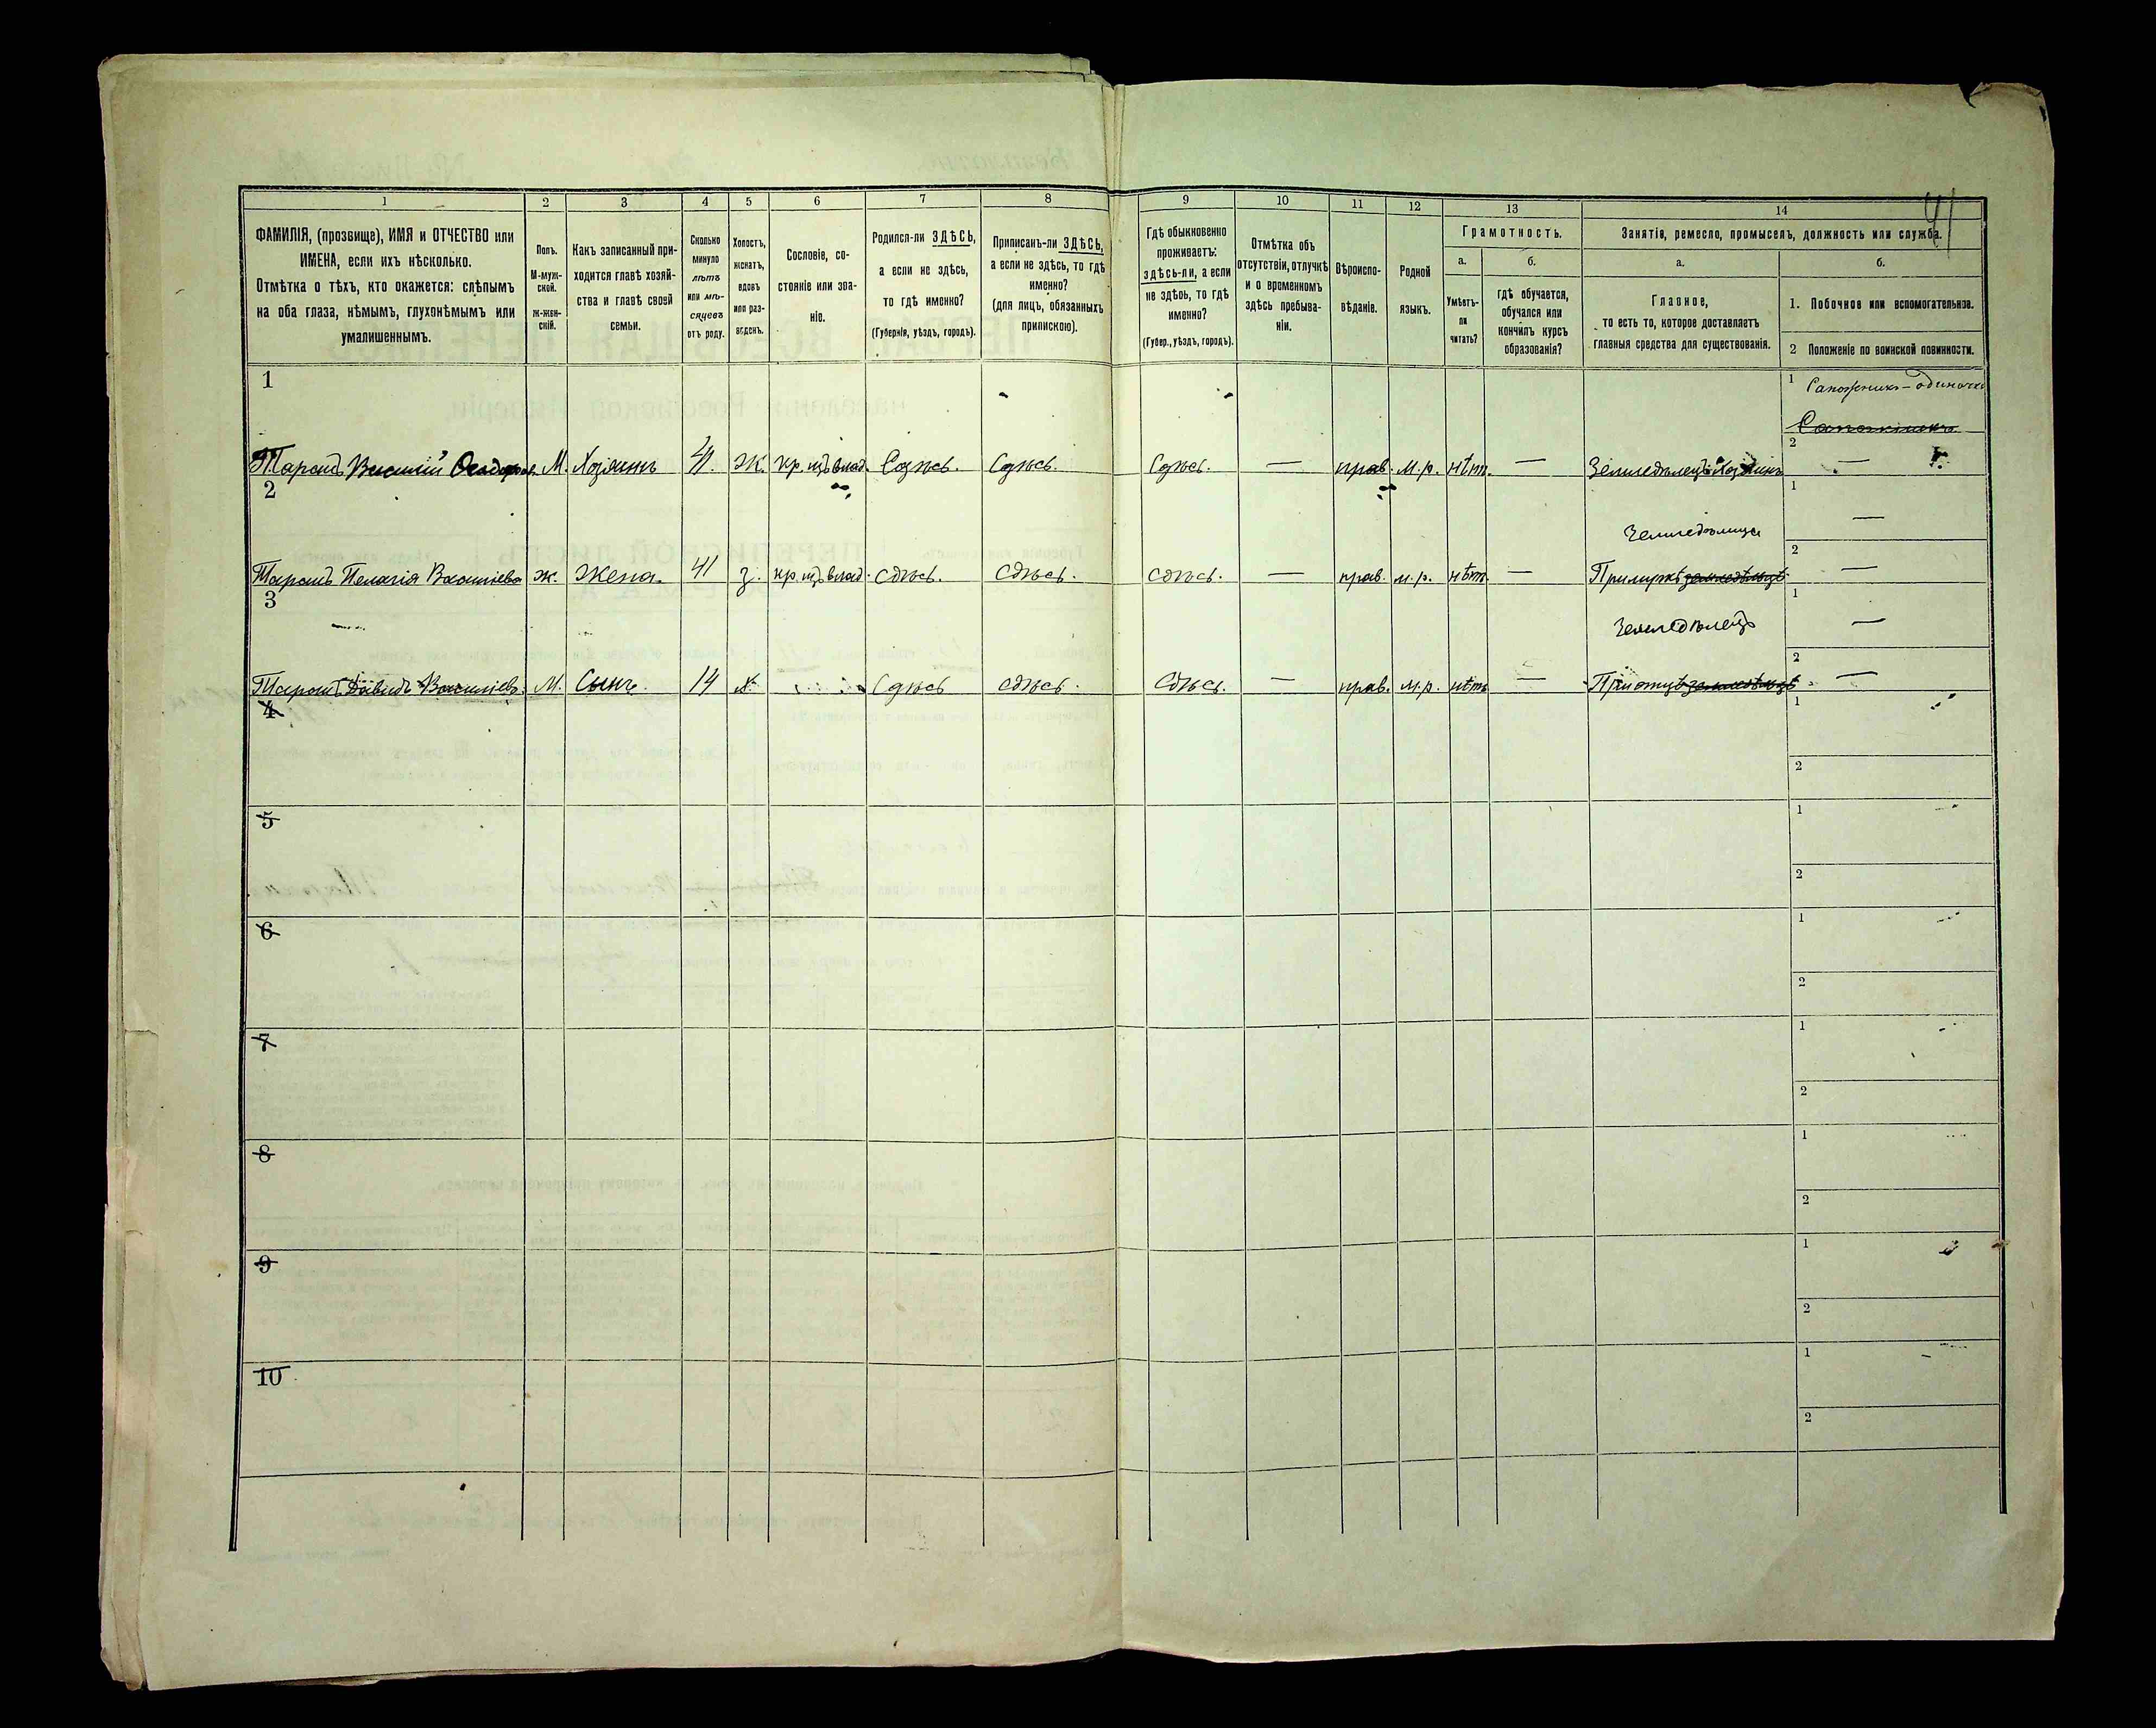 41
1 2 3 4 5 6 7 8 9 10 11 12 13 14
ФАМИЛІЯ, (прозвище), ИМЯ и ОТЧЕСТВО или
ИМЕНА, если ихъ нѣсколько.
Отмѣтка о тѣхъ, кто окажется: слѣпымъ
на оба глаза, нѣмымъ, глухонѣмымъ или
умалишеннымъ.
Полъ.
М-муж-
ской.
Ж-жен-
скій.
Какъ записанный при-
ходится главѣ хозяй-
ства и главѣ своей
семьи.
Сколько
минуло
лѣтъ
или мѣ-
сяцевъ
отъ роду.
Холостъ,
женатъ,
вдовъ
или раз-
веденъ.
Сословіе, со-
стояніе или зва-
ніе.
Родился-ли ЗДѢСЬ,
а если не здѣсь,
то гдѣ именно?
(Губернія, уѣздъ, городъ).
Приписанъ-ли ЗДѢСЬ,
а если не здѣсь, то гдѣ
именно?
(для лицъ, обязанныхъ
припискою).
Гдѣ обыкновенно
проживаетъ:
здѣсь-ли, а если
не здѣсь, то гдѣ
именно?
(Губер., уѣздъ, городъ).
Отмѣтка объ
отсутствіи, отлучкѣ
и о временномъ
здѣсь пребыва-
ніи.
Вѣроиспо-
вѣданіе.
Родной
языкъ.
Грамотность.
а.
Умѣетъ-
ли
читать?
б.
гдѣ обучается,
обучался или
кончилъ курсъ
образованія?
Занятія, ремесло, промыселъ, должность или служба.
а.
Главное,
то есть то, которое доставляетъ
главныя средства для существованія.
б.
1. Побочное или вспомогательное.
2 Положеніе по воинской повинности.
1
1 Сапожникъ-одиночка
2
Василій М. Хозяинъ 41. Ж. кр. изъ влад. Сдѣсь. Сдѣсь. Сдѣсь. — прав. м.р. нѣт. — Земледѣлецъ Хозяинъ —
2
1 —
Земледѣлица
2
Пелагія Василіева ж. Жена. 41 з. кр. изъ влад. Сдѣсь. Сдѣсь. Сдѣсь. — прав. м.р. нѣт. — При мужѣ земледѣльцѣ —
3
1 —
Земледѣлецъ
2
Давидъ Василіевъ. М. Сынъ. 14 х. Сдѣсь Сдѣсь. Сдѣсь. — прав. м.р. нѣтъ — При отцѣ земледѣльцѣ —
4
1
2
5
1
2
6
1
2
7
1
2
8
1
2
9
1
2
10
1
2